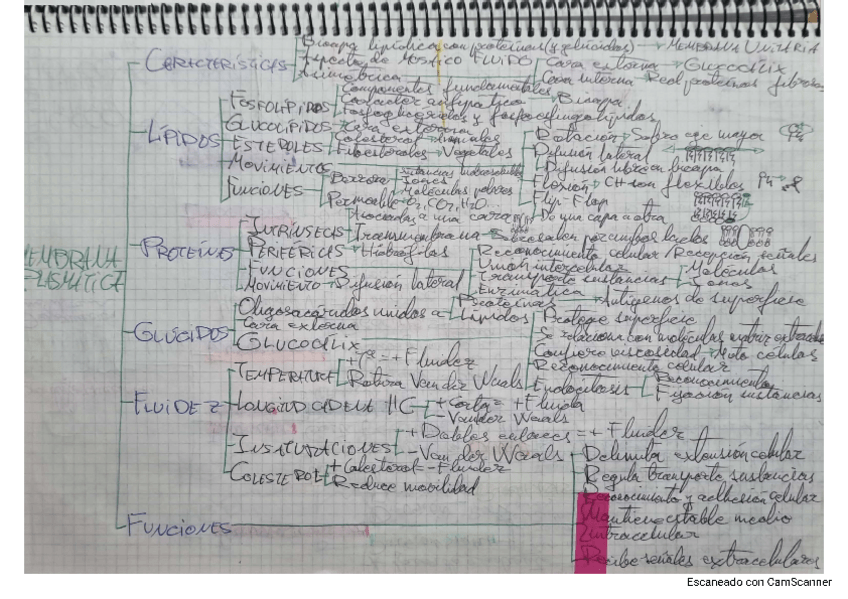 Bicapa lipídica con proteínas (y glúcidos) → MEMBRANA UNITARIA
CARACTERÍSTICAS
Aspecto de MOSAICO FLUIDO
Asimétrica
Cara externa → GLUCOCÁLIX
Cara interna → Red proteínas fibrosas
LÍPIDOS
FOSFOLÍPIDOS
Componentes fundamentales
Carácter anfipático → Bicapa
Fosfoglicéridos y fosfoesfingolípidos
GLUCOLÍPIDOS → Cara externa
ESTEROLES
Colesterol → Animales
Fitoesteroles → Vegetales
MOVIMIENTO
Rotación → Sobre eje mayor
Difusión lateral
Difusión libre en bicapa
Flexión → CH son flexibles
Flip-Flop
De una capa a otra
FUNCIONES
Barrera
Iones
Moléculas polares
Permeable → O2, CO2, H2O...
MEMBRANA
PLASMÁTICA
PROTEÍNAS
INTRÍNSECAS
Asociadas a una cara
Transmembrana → Sobresalen por ambos lados
PERIFÉRICAS → Hidrófilas
FUNCIONES
Reconocimiento celular / Recepción señales
Unión intercelular
Transporte sustancias
Moléculas
Iones
Enzimática
MOVIMIENTO → Difusión lateral
GLÚCIDOS
Oligosacáridos unidos a
Proteínas → Antígenos de superficie
Lípidos
Cara externa
GLUCOCÁLIX
Protege superficie
Se relaciona con moléculas matriz extracelular
Confiere viscosidad → Moto celulas
Reconocimiento celular
Endocitosis
Reconocimiento
Fijación sustancias
FLUIDEZ
TEMPERATURA
+Tª = + Fluidez
Rotura Van der Waals
LONGITUD CADENA HC
+ Corta = + Fluida
- Van der Waals
INSATURACIONES
+ Dobles enlaces = + Fluidez
- Van der Waals
COLESTEROL
+ Colesterol = - Fluidez
Reduce mobilidad
FUNCIONES
Delimita extensión celular
Regula transporte sustancias
Reconocimiento y adhesión celular
Mantiene estable medio
Intracelular
Recibe señales extracelulares
Escaneado con CamScanner